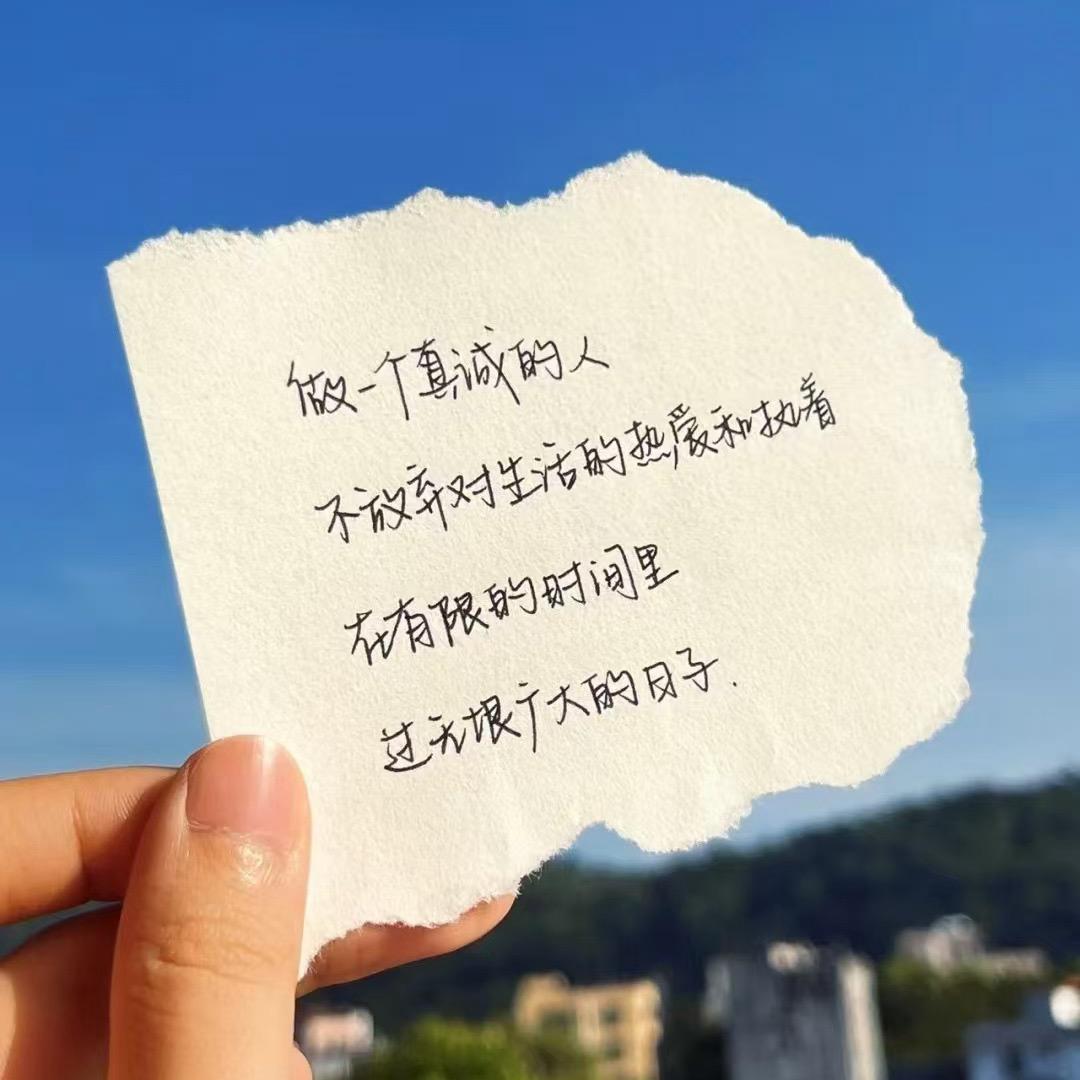 做一个真诚的人
不放弃对生活的热爱和执着
在有限的时间里
过无垠广大的日子.